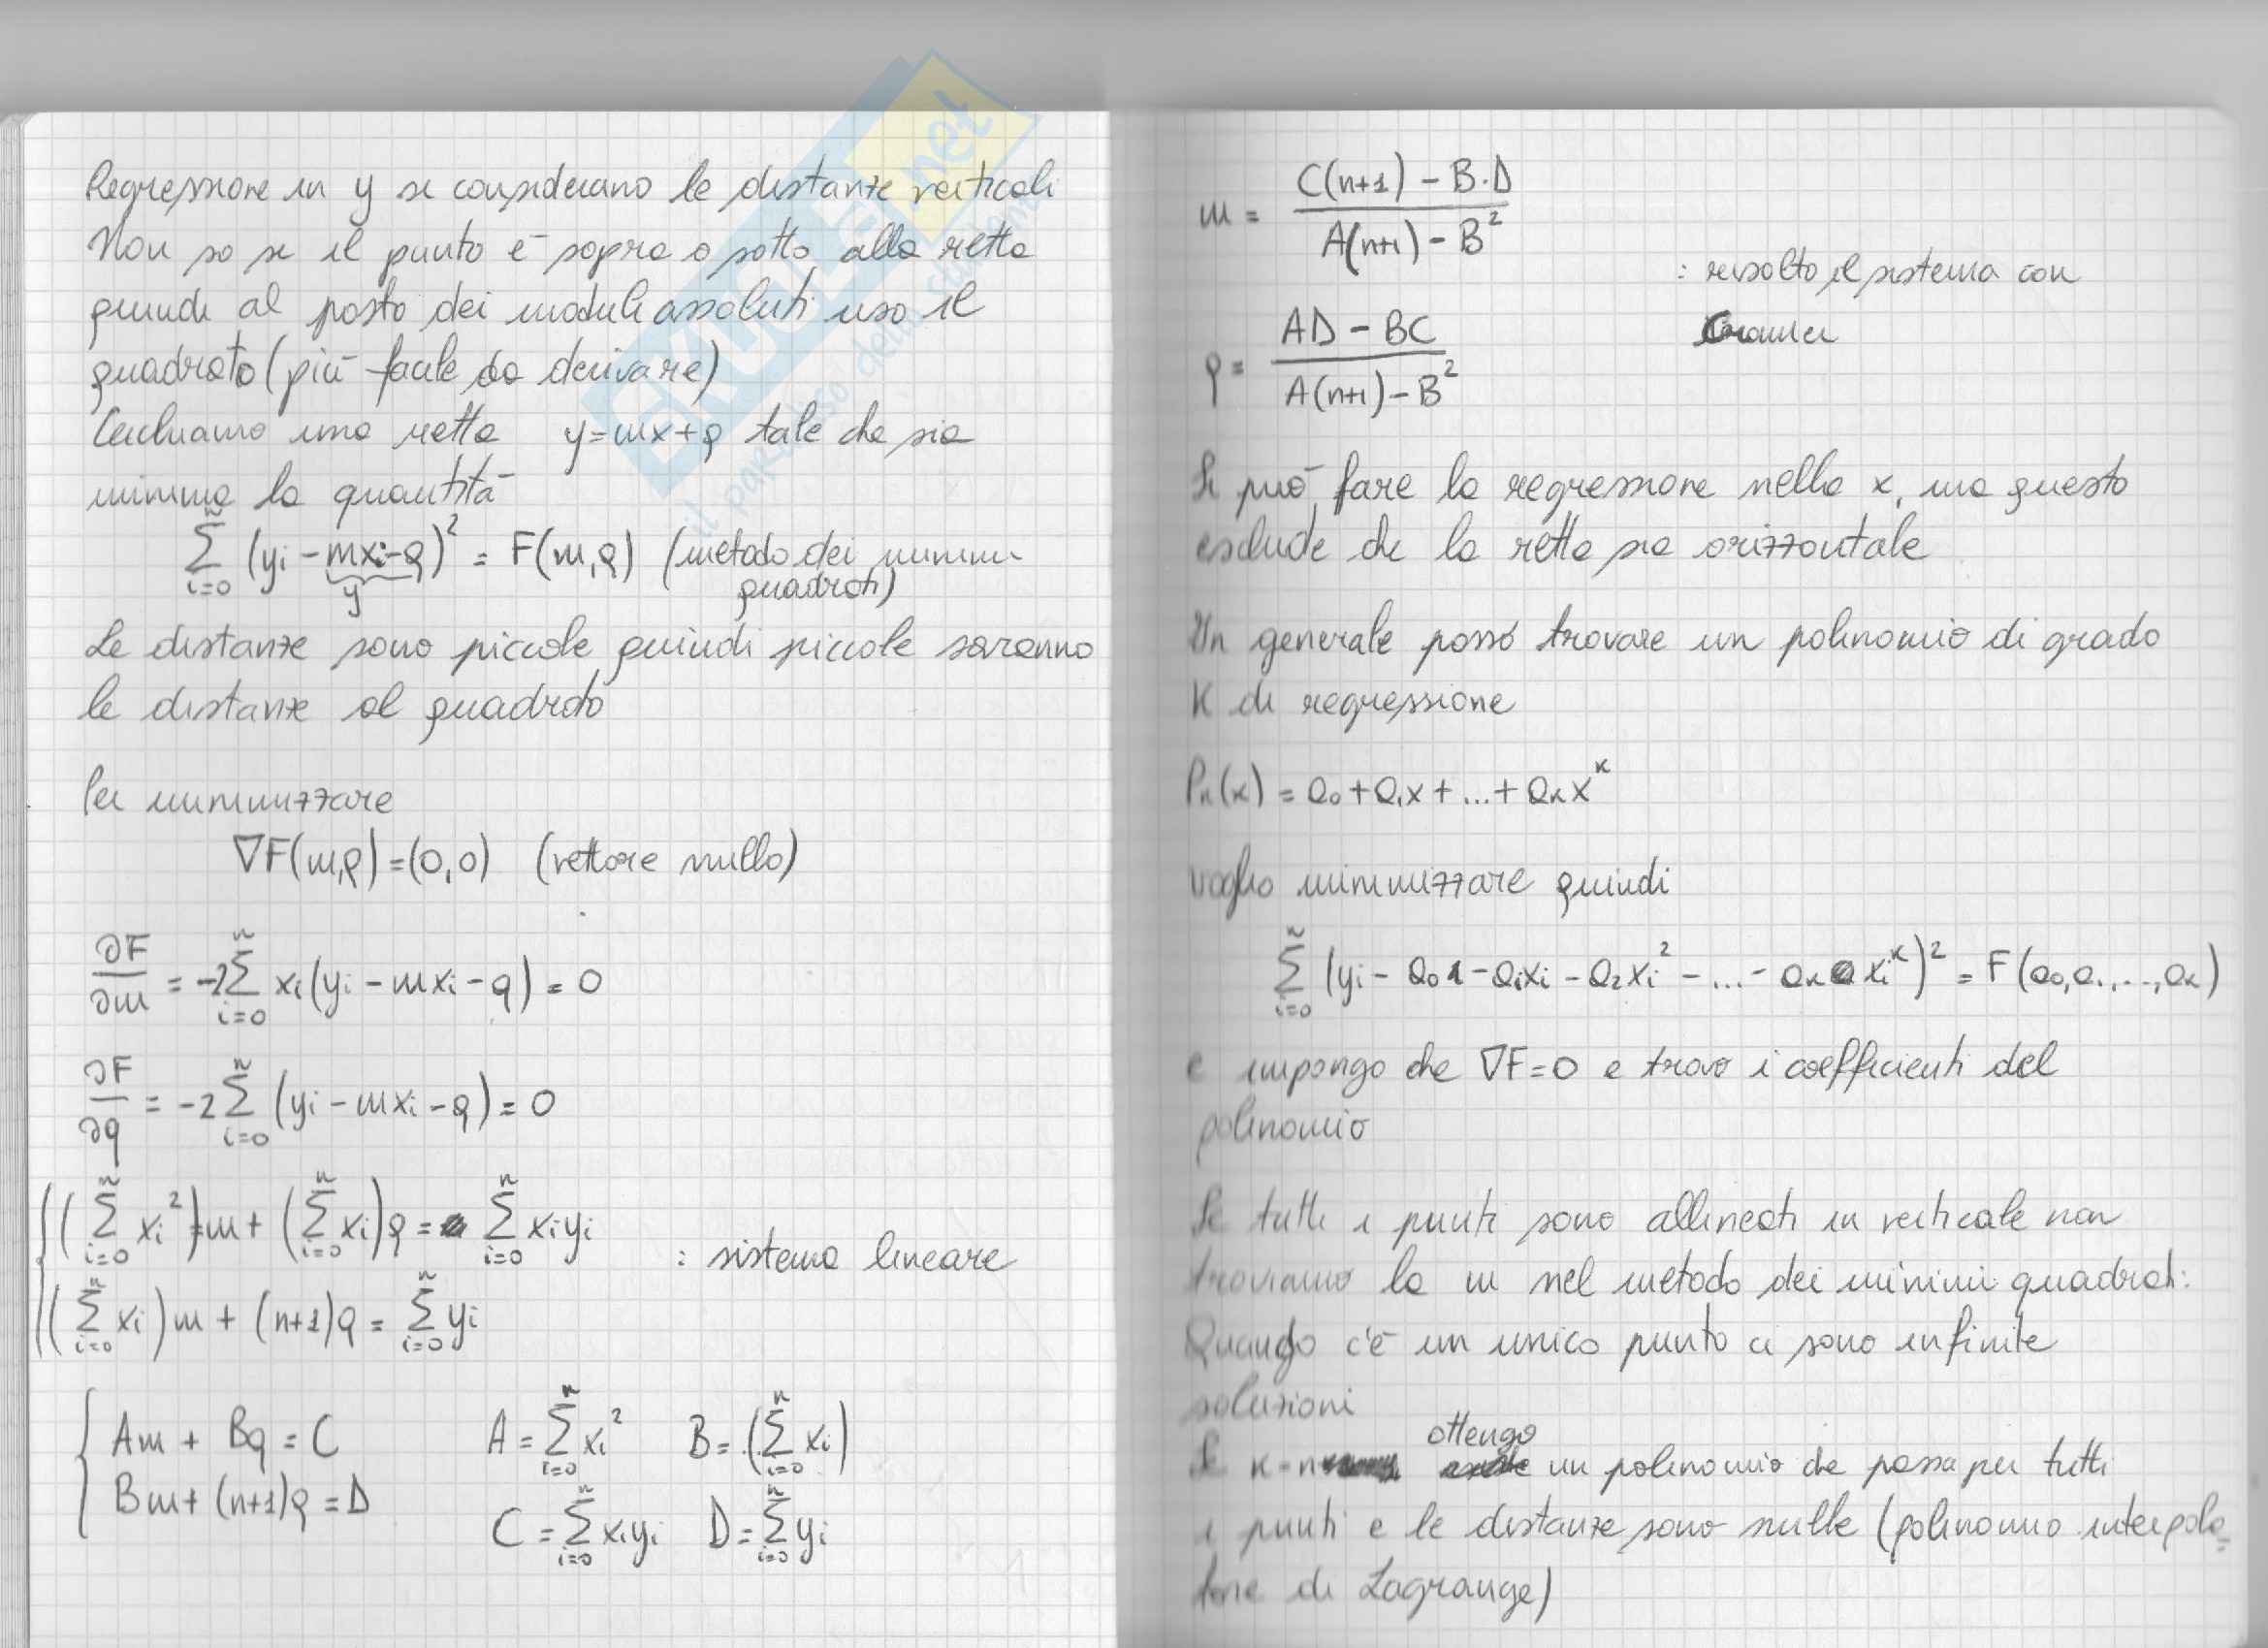 Regressione in y si considerano le distanze verticali
Non so se il punto è sopra o sotto alla retta
quindi al posto dei moduli assoluti uso il
quadrato (più facile da derivare)
Cerchiamo una retta y=mx+q tale che sia
minima la quantità
\sum_{i=0}^{n} (yi - mxi - q)^2 = F(m,q) (metodo dei minimi
y quadrati)
Le distanze sono piccole quindi piccole saranno
le distanze al quadrato
Per minimizzare
∇F(m,q)=(0,0) (vettore nullo)
∂F/∂m = -2 \sum_{i=0}^{n} xi(yi - mxi - q) = 0
∂F/∂q = -2 \sum_{i=0}^{n} (yi - mxi - q) = 0
(\sum_{i=0}^{n} xi^2)m + (\sum_{i=0}^{n} xi)q = \sum_{i=0}^{n} xiyi
: sistema lineare
(\sum_{i=0}^{n} xi)m + (n+1)q = \sum_{i=0}^{n} yi
Am + Bq = C A = \sum_{i=0}^{n} xi^2 B = (\sum_{i=0}^{n} xi)
Bm + (n+1)q = D C = \sum_{i=0}^{n} xiyi D = \sum_{i=0}^{n} yi
m = (C(n+1) - B·D)/(A(n+1) - B^2)
: risolto il sistema con
Cramer
q = (AD - BC)/(A(n+1) - B^2)
Si può fare la regressione nella x, ma questo
esclude che la retta sia orizzontale
In generale posso trovare un polinomio di grado
K di regressione
Pk(x) = a0 + a1x + ... + akx^k
voglio minimizzare quindi
\sum_{i=0}^{n} (yi - a0 1 - a1xi - a2xi^2 - ... - ak xi^k)^2 = F(a0, a1, ..., ak)
e impongo che ∇F=0 e trovo i coefficienti del
polinomio
Se tutti i punti sono allineati in verticale non
troviamo la m nel metodo dei minimi quadrati.
Quando c'è un unico punto ci sono infinite
soluzioni
Se k=n ottengo un polinomio che passa per tutti
i punti e le distanze sono nulle (polinomio interpola-
tore di Lagrange)